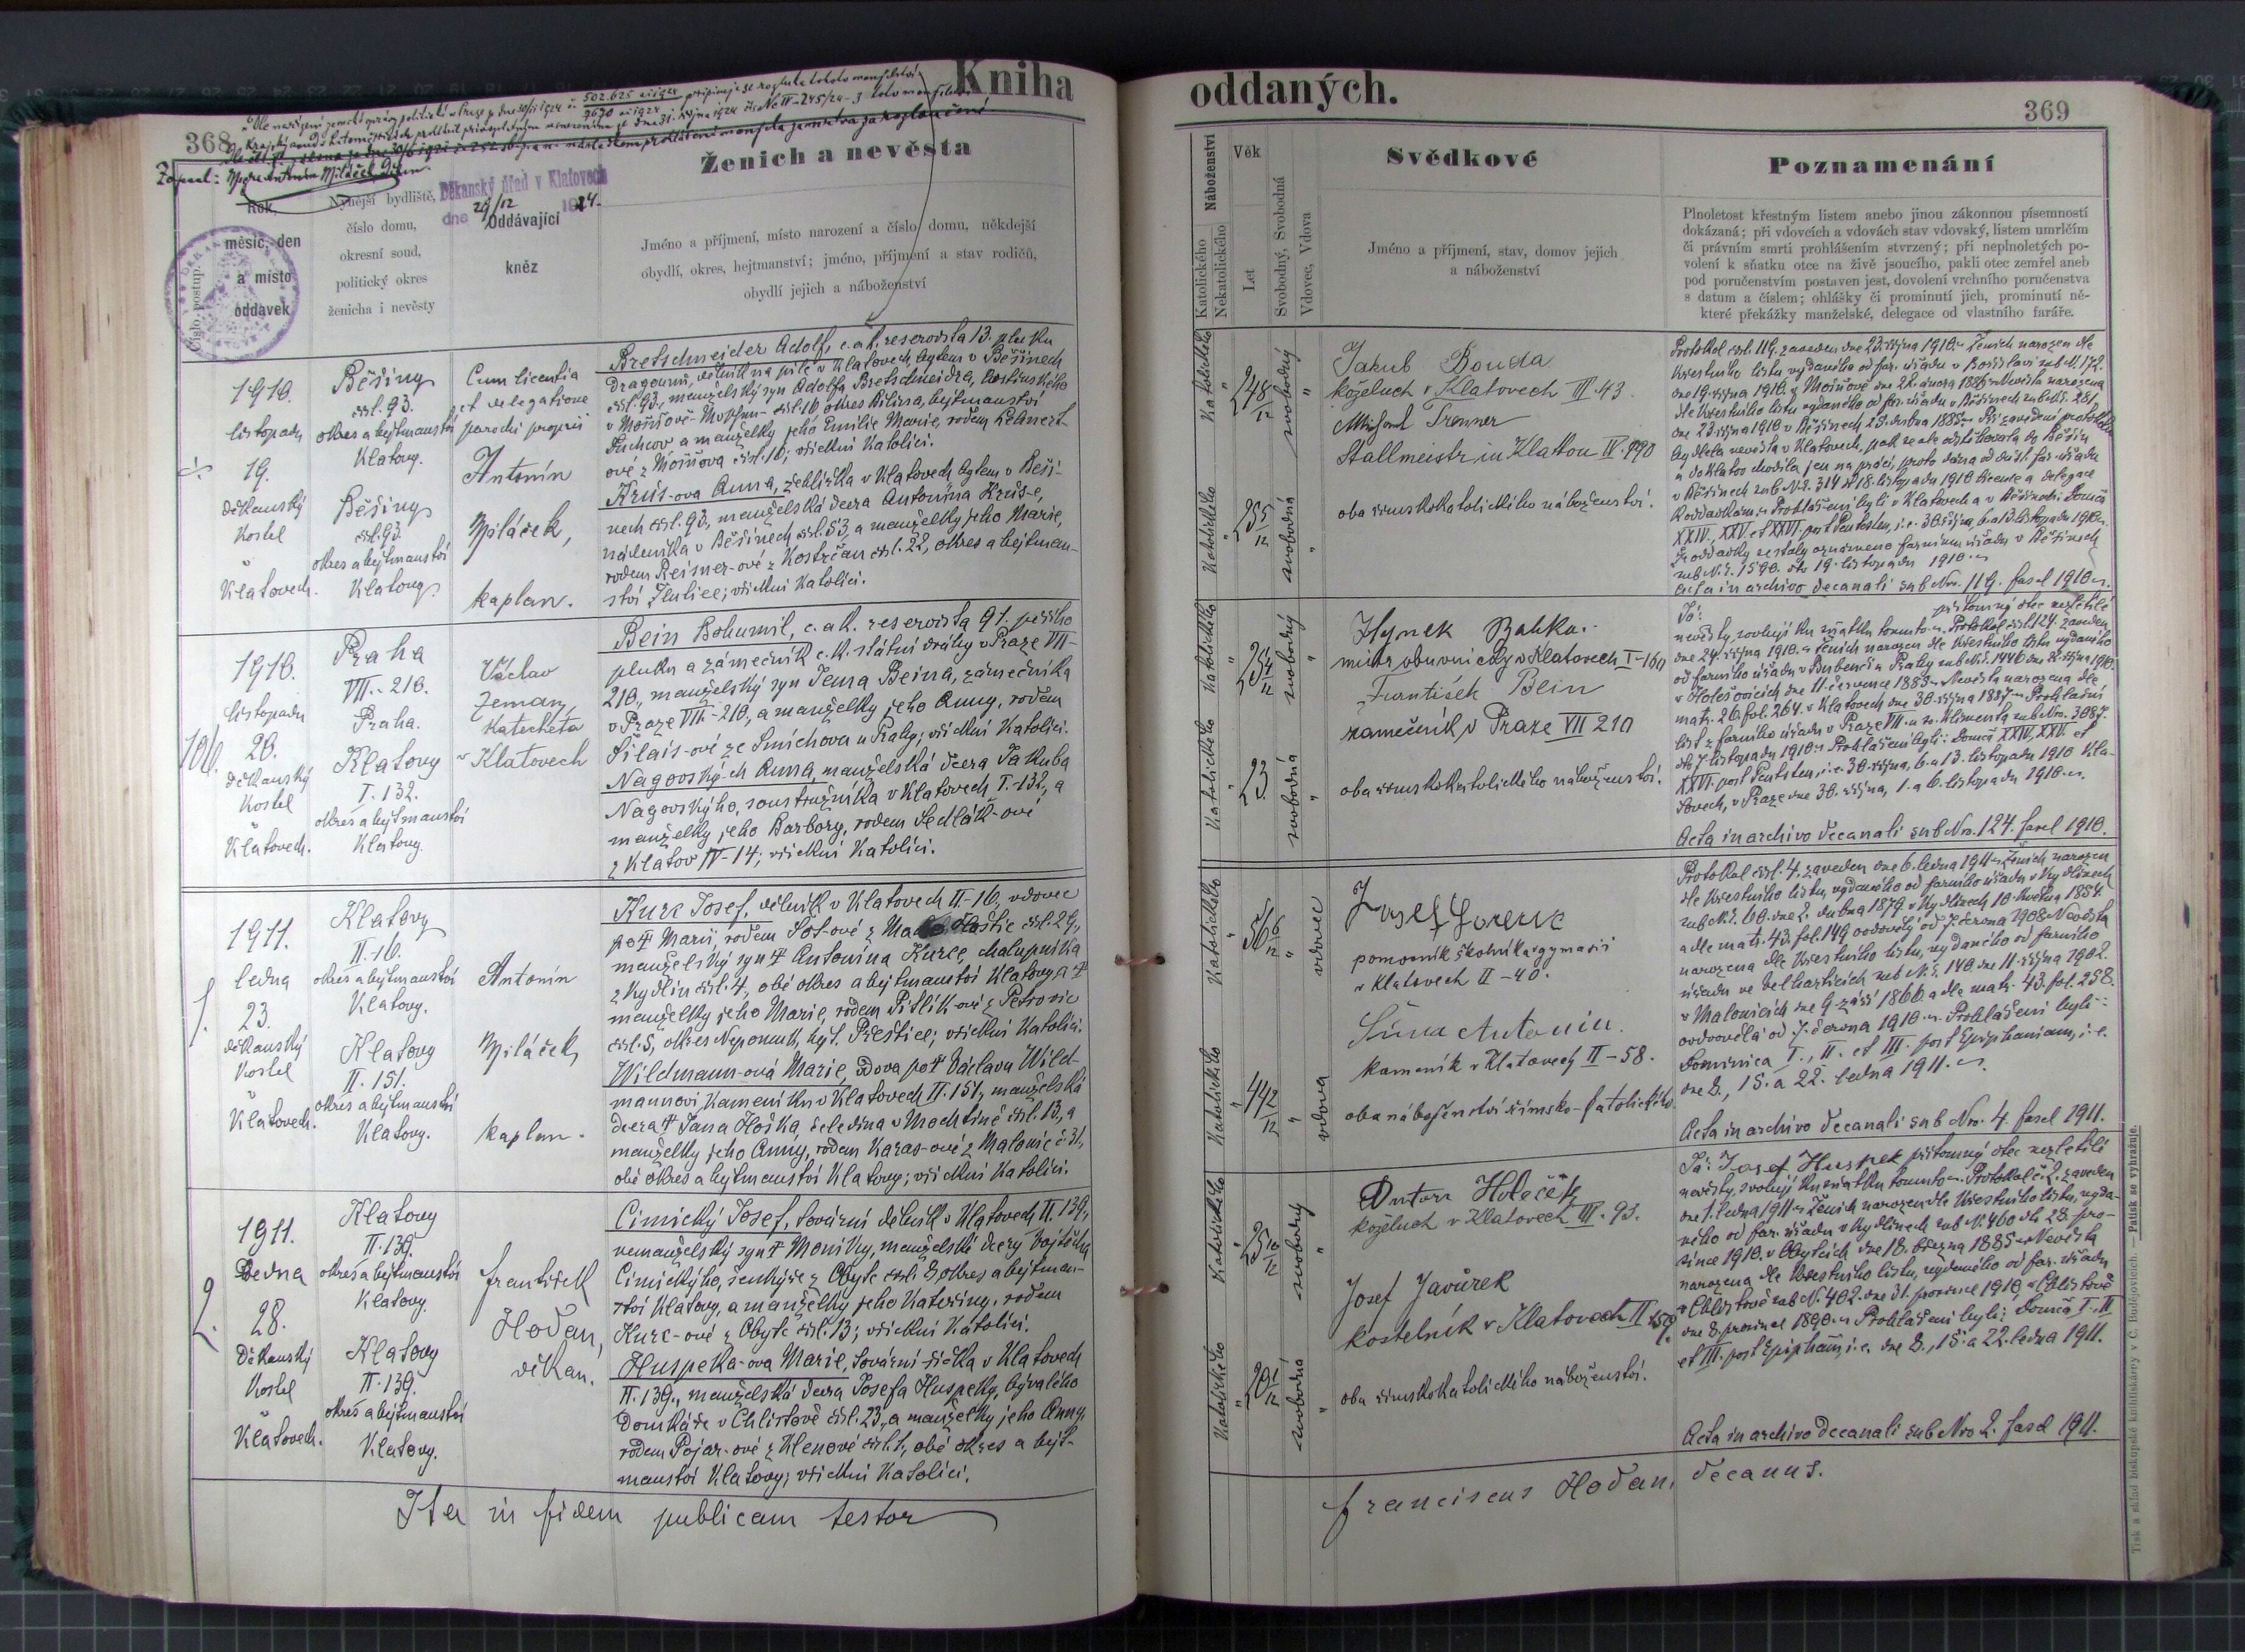 Kniha
368
Děkanský úřad v Klatovech
dne 29/12 1924.
Ženich a nevěsta
Rok,
měsíc, den
a místo
oddavek
Číslo postup.
Nynější bydliště,
číslo domu,
okresní soud,
politický okres
ženicha i nevěsty
Oddávající
kněz
Jméno a příjmení, místo narození a číslo domu, někdejší
obydlí, okres, hejtmanství; jméno, příjmení a stav rodičů,
obydlí jejich a náboženství
1910.
listopadu
19.
děkanský
kostel
v
Klatovech.
Běšiny
čísl. 93.
okres a hejtmanství
Klatovy.
Běšiny
čísl. 93.
okres a hejtmanství
Klatovy.
Cum licentia
et delegatione
parochi proprii
Antonín
Mpláček,
kaplan.
Bretschneider Adolf, c. a k. reservista 13. pluku
dragounů, dělník na pile v Klatovech, bytem v Běšinech
čísl. 93, manželský syn Adolfa Bretschneidra,
okres Bílina, hejtmanství
Duchcov a manželky jeho Emilie Marie, rodem
čísl. 16; všichni katolíci.
Krůs-ova Anna, žehlířka v Klatovech, bytem v Běši-
nech čísl. 93, manželská dcera Antonína Krůs-e,
nádeníka v Běšinech čísl. 53, a manželky jeho Marie,
rodem Reisner-ové z Kostrčan čísl. 22, okres a hejtman-
ství Žlutice; všichni katolíci.
1910.
listopadu
20.
děkanský
kostel
v
Klatovech.
Praha
VII.-210.
Praha.
Klatovy
I. 132.
okres a hejtmanství
Klatovy.
Václav
Zeman,
katecheta
v Klatovech
Bein Bohumil, c. a k. reservista 91. pěšího
pluku a zámečník c. k. státní dráhy v Praze VII-
210, manželský syn Jana Beina, zámečníka
v Praze VII-210, a manželky jeho Anny, rodem
Šilais-ové ze Smíchova u Prahy; všichni katolíci.
Nagovských Anna, manželská dcera Jakuba
Nagovského, soustružníka v Klatovech I.-132, a
manželky jeho Barbory, rodem Sedlák-ové
z Klatov IV-14; všichni katolíci.
1.
1911.
ledna
23.
děkanský
kostel
v
Klatovech.
Klatovy
II. 10.
okres a hejtmanství
Klatovy.
Klatovy
II. 151.
okres a hejtmanství
Klatovy.
Antonín
Mpláček,
kaplan.
Kurc Josef, dělník v Klatovech II-10, vdovec
po † Marii, rodem Šot-ové z čísl. 29,
manželský syn † Antonína Kurce, chalupníka
z Kydlin čísl. 4, obé okres a hejtmanství Klatovy, a †
manželky jeho Marie, rodem Pitlík-ové z Petrovic
čísl. 5, okres Nepomuk, hejt. Přeštice; všichni katolíci.
Wildmann-ová Marie, vdova po † Václavu Wild-
mannovi kameníku v Klatovech II. 151, manželská
dcera † Jana Hoška, čeledína v Mochtíně čísl. 13, a
manželky jeho Anny, rodem Karas-ové z Malonic č. 31,
obé okres a hejtmanství Klatovy; všichni katolíci.
2.
1911.
Ledna
28.
Děkanský
kostel
v
Klatovech.
Klatovy
II. 139.
okres a hejtmanství
Klatovy.
Klatovy
II. 139.
okres a hejtmanství
Klatovy.
František
Hodan,
děkan.
Cimický Josef, tovární dělník v Klatovech II. 139,
nemanželský syn † Moniky, manželské dcery Vojtěcha
Cimického, šenkýře z Obytc čísl. 8, okres a hejtman-
ství Klatovy, a manželky jeho Kateřiny, rodem
Kurc-ové z Obytc čísl. 13; všichni katolíci.
Huspeka-ova Marie, tovární šička v Klatovech
II. 139., manželská dcera Josefa Huspeky, bývalého
domkáře v Chlistově čísl. 23, a manželky jeho Anny,
rodem Pojar-ové z Klenové čísl. 1, obé okres a hejt-
manství Klatovy; všichni katolíci.
Ita in fidem publicam testor
oddaných.
369
Náboženství
Katolického
Nekatolického
Věk
Let
Svobodný, Svobodná
Vdovec, Vdova
Svědkové
Jméno a příjmení, stav, domov jejich
a náboženství
Poznamenání
Plnoletost křestným listem anebo jinou zákonnou písemností
dokázaná; při vdovcích a vdovách stav vdovský, listem umrlčím
či právním smrti prohlášením stvrzený; při neplnoletých po-
volení k sňatku otce na živě jsoucího, pakli otec zemřel aneb
pod poručenstvím postaven jest, dovolení vrchního poručenstva
s datum a číslem; ohlášky či prominutí jich, prominutí ně-
které překážky manželské, delegace od vlastního faráře.
Katolického
24 8/12
svobodný
Katolického
25 7/12
svobodná
Jakub Bouda
koželuh v Klatovech III. 43.
Trenner
Stallmeistr in Klattau IV. 190
oba římskokatolického náboženství.
Protokol čísl. 119. zaveden dne 23. října 1910. Ženich narozen dle
křestního listu vydaného od far. úřadu v
dne 19. října 1910. v dne 22. února 1886. Nevěsta narozena
dle křestního listu vydaného od far. úřadu v Běšinech sub N. E. 281,
dne 23. října 1910 v Běšinech 25. dubna 1885. Při zavedení protokolu
bydlela nevěsta v Klatovech, pak se ale odstěhovala do Běšin
a do Klatov chodila jen na práci, proto dána od důst. far. úřadu
v Běšinech sub N. E. 314 dt 18. listopadu 1910 licence a delegace
k oddavkám. Prohlášení byli v Klatovech a v Běšinech: Domca
XXIV., XXV. et XXVI. post Pentecosten, i. e. 30. října, 6. a 13. listopadu 1910.
Tyto oddavky zostaly oznámeno farnímu úřadu v Běšinech
sub N. E. 1590. dto 19. listopadu 1910.
Acta in archivo decanali sub Nro. 119. fasc 1910.
Katolického
25 4/12
svobodný
Katolického
23
svobodná
Hynek Bahka.
mistr obuvnický v Klatovech I-160
František Bein
zámečník v Praze VII 210
oba římskokatolického náboženství.
Já: přítomný otec nezletilé
nevěsty, svoluji ku sňatku tomuto. Protokol čísl. 124. zaveden
dne 24. října 1910. Ženich narozen dle křestního listu vydaného
od farního úřadu v Bubenči u Prahy sub N. E. 1446 dne 22. října 1910.
v Holešovicích dne 11. července 1885. Nevěsta narozena dle
matr. 26. fol. 264. v Klatovech dne 30. října 1887. Prohlašní
list z farního úřadu v Praze VII. u sv. Klimenta sub Nro. 3087.
dto 7. listopadu 1910. Prohlášeni byli: Domca XXIV. XXV. et
XXVI. post Pentecosten, i. e. 30. října, 6. a 13. listopadu 1910 Kla-
tovech, v Praze dne 30. října, 1. a 6. listopadu 1910.
Acta in archivo decanali sub Nro. 124. fasc 1910.
Katolického
56 6/12
vdovec
Katolického
44 2/12
vdova
Josef
pomocník školníka gymnasia
v Klatovech II-40.
Šůna Antonín.
kameník v Klatovech II-58.
oba náboženství římsko-katolického
Protokol čísl. 4. zaveden dne 6. ledna 1911. Ženich narozen
dle křestního listu, vydaného od farního úřadu v Kydlinech
sub N. E. 60. dne 2. dubna 1879 v Kydlinech 10. května 1854.
a dle matr. 43. fol. 149 ovdověly od 7. června 1908. Nevěsta
narozena dle křestního listu, vydaného od farního
úřadu ve Velharticích sub N. E. 140. dne 11. října 1902.
v Malonicích dne 9. září 1866. a dle matr. 43. fol. 258.
ovdověla od 7. června 1910. Prohlášeni byli:
Dominica I., II. et III. post Epiphaniam, i. e.
dne 8., 15. a 22. ledna 1911.
Acta in archivo decanali sub Nro. 4. fasc 1911.
Katolického
25 10/12
svobodný
Katolického
20 1/12
svobodná
Antonn Holeček
koželuh v Klatovech III. 93.
Josef Javůrek
kostelník v Klatovech II 159
oba římskokatolického náboženství.
Já: Josef Huspek přítomný otec nezletilé
nevěsty, svoluji ku sňatku tomuto. Protokol č. 2. zaveden
dne 1. ledna 1911. Ženich narozen dle křestního listu, vyda-
ného od far. úřadu v Kydlinech sub N. 460 dt. 28. pro-
since 1910. v Obytcích dne 18. března 1885. Nevěsta
narozena dle křestního listu, vydaného od far. úřadu
v Chlistově sub N. 402. dne 31. prosince 1910. v Chlistově
dne 8. prosince 1890. Prohlášeni byli: Domca I., II.
et III. post Epipham, i. e. dne 8., 15. a 22. ledna 1911.
Acta in archivo decanali sub Nro 2. fasc 1911.
Franciscus Hodan, decanus.
Tisk a sklad biskupské knihtiskárny v Č. Budějovicích. — Patisk se vyhražuje.